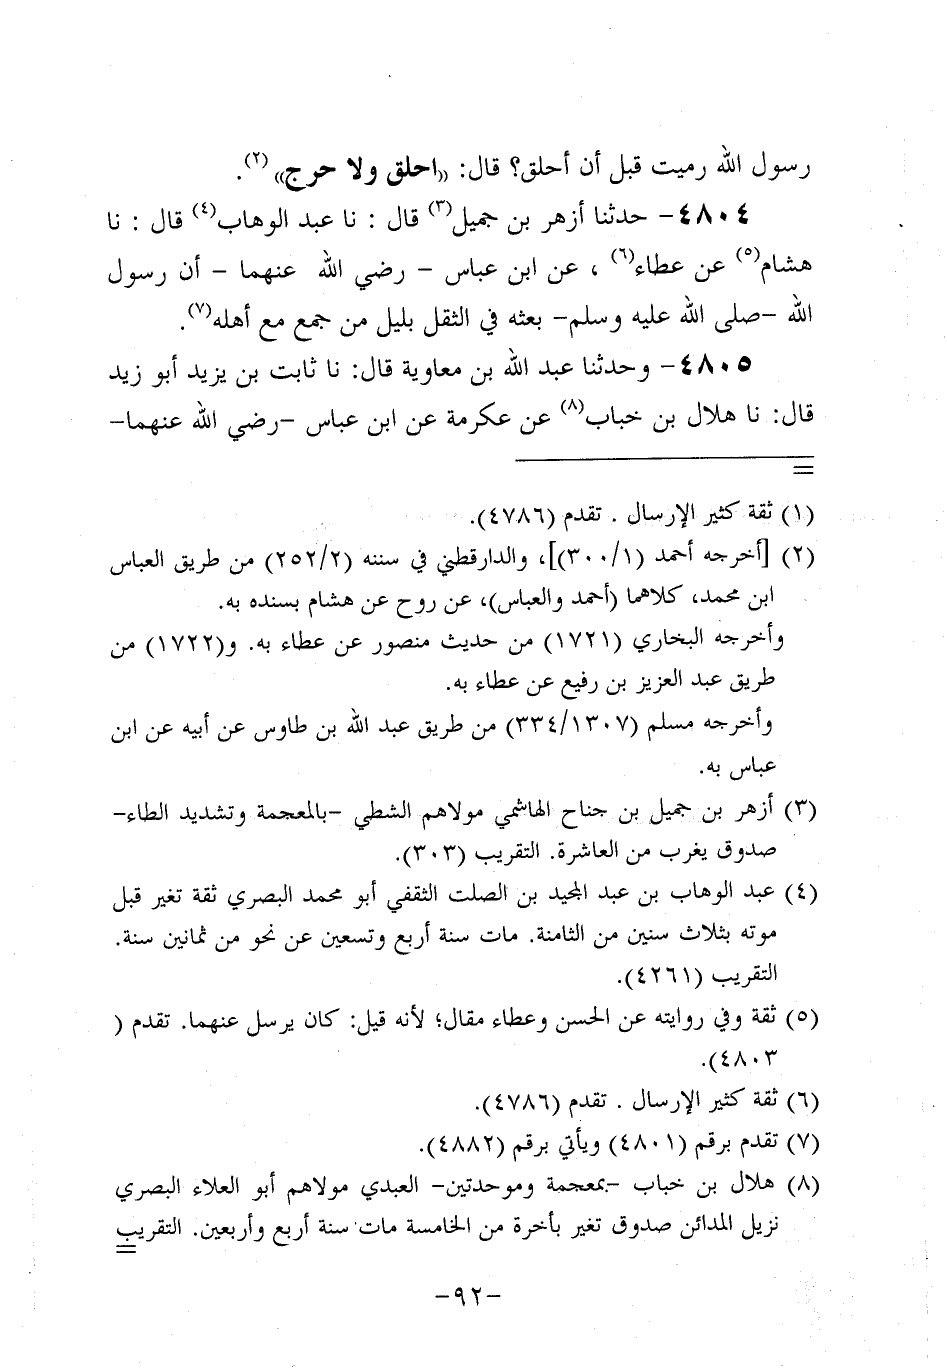 رسول الله رميت قبل أن أحلق؟ قال: «احلق ولا حرج»(٢).
٤٨٠٤- حدثنا أزهر بن جميل(٣) قال : نا عبد الوهاب(٤) قال : نا
هشام(٥) عن عطاء(٦) ، عن ابن عباس - رضي الله عنهما - أن رسول
الله -صلى الله عليه وسلم- بعثه في الثقل بليل من جمع مع أهله(٧).
٤٨٠٥- وحدثنا عبد الله بن معاوية قال: نا ثابت بن يزيد أبو زيد
قال: نا هلال بن خباب(٨) عن عكرمة عن ابن عباس -رضي الله عنهما-
=
(١) ثقة كثير الإرسال . تقدم (٤٧٨٦).
(٢) [أخرجه أحمد (٣٠٠/١)]، والدارقطني في سننه (٢٥٢/٢) من طريق العباس
ابن محمد، كلاهما (أحمد والعباس)، عن روح عن هشام بسنده به.
وأخرجه البخاري (١٧٢١) من حديث منصور عن عطاء به. و(١٧٢٢) من
طريق عبد العزيز بن رفيع عن عطاء به.
وأخرجه مسلم (٣٣٤/١٣٠٧) من طريق عبد الله بن طاوس عن أبيه عن ابن
عباس به.
(٣) أزهر بن جميل بن جناح الهاشمي مولاهم الشطي -بالمعجمة وتشديد الطاء-
صدوق يغرب من العاشرة. التقريب (٣٠٣).
(٤) عبد الوهاب بن عبد المجيد بن الصلت الثقفي أبو محمد البصري ثقة تغير قبل
موته بثلاث سنين من الثامنة. مات سنة أربع وتسعين عن نحو من ثمانين سنة.
التقريب (٤٢٦١).
(٥) ثقة وفي روايته عن الحسن وعطاء مقال؛ لأنه قيل: كان يرسل عنهما. تقدم (
٤٨٠٣).
(٦) ثقة كثير الإرسال . تقدم (٤٧٨٦).
(٧) تقدم برقم (٤٨٠١) ويأتي برقم (٤٨٨٢).
(٨) هلال بن خباب -بمعجمة وموحدتين- العبدي مولاهم أبو العلاء البصري
نزيل المدائن صدوق تغير بأخرة من الخامسة مات سنة أربع وأربعين. التقريب
=
-٩٢-